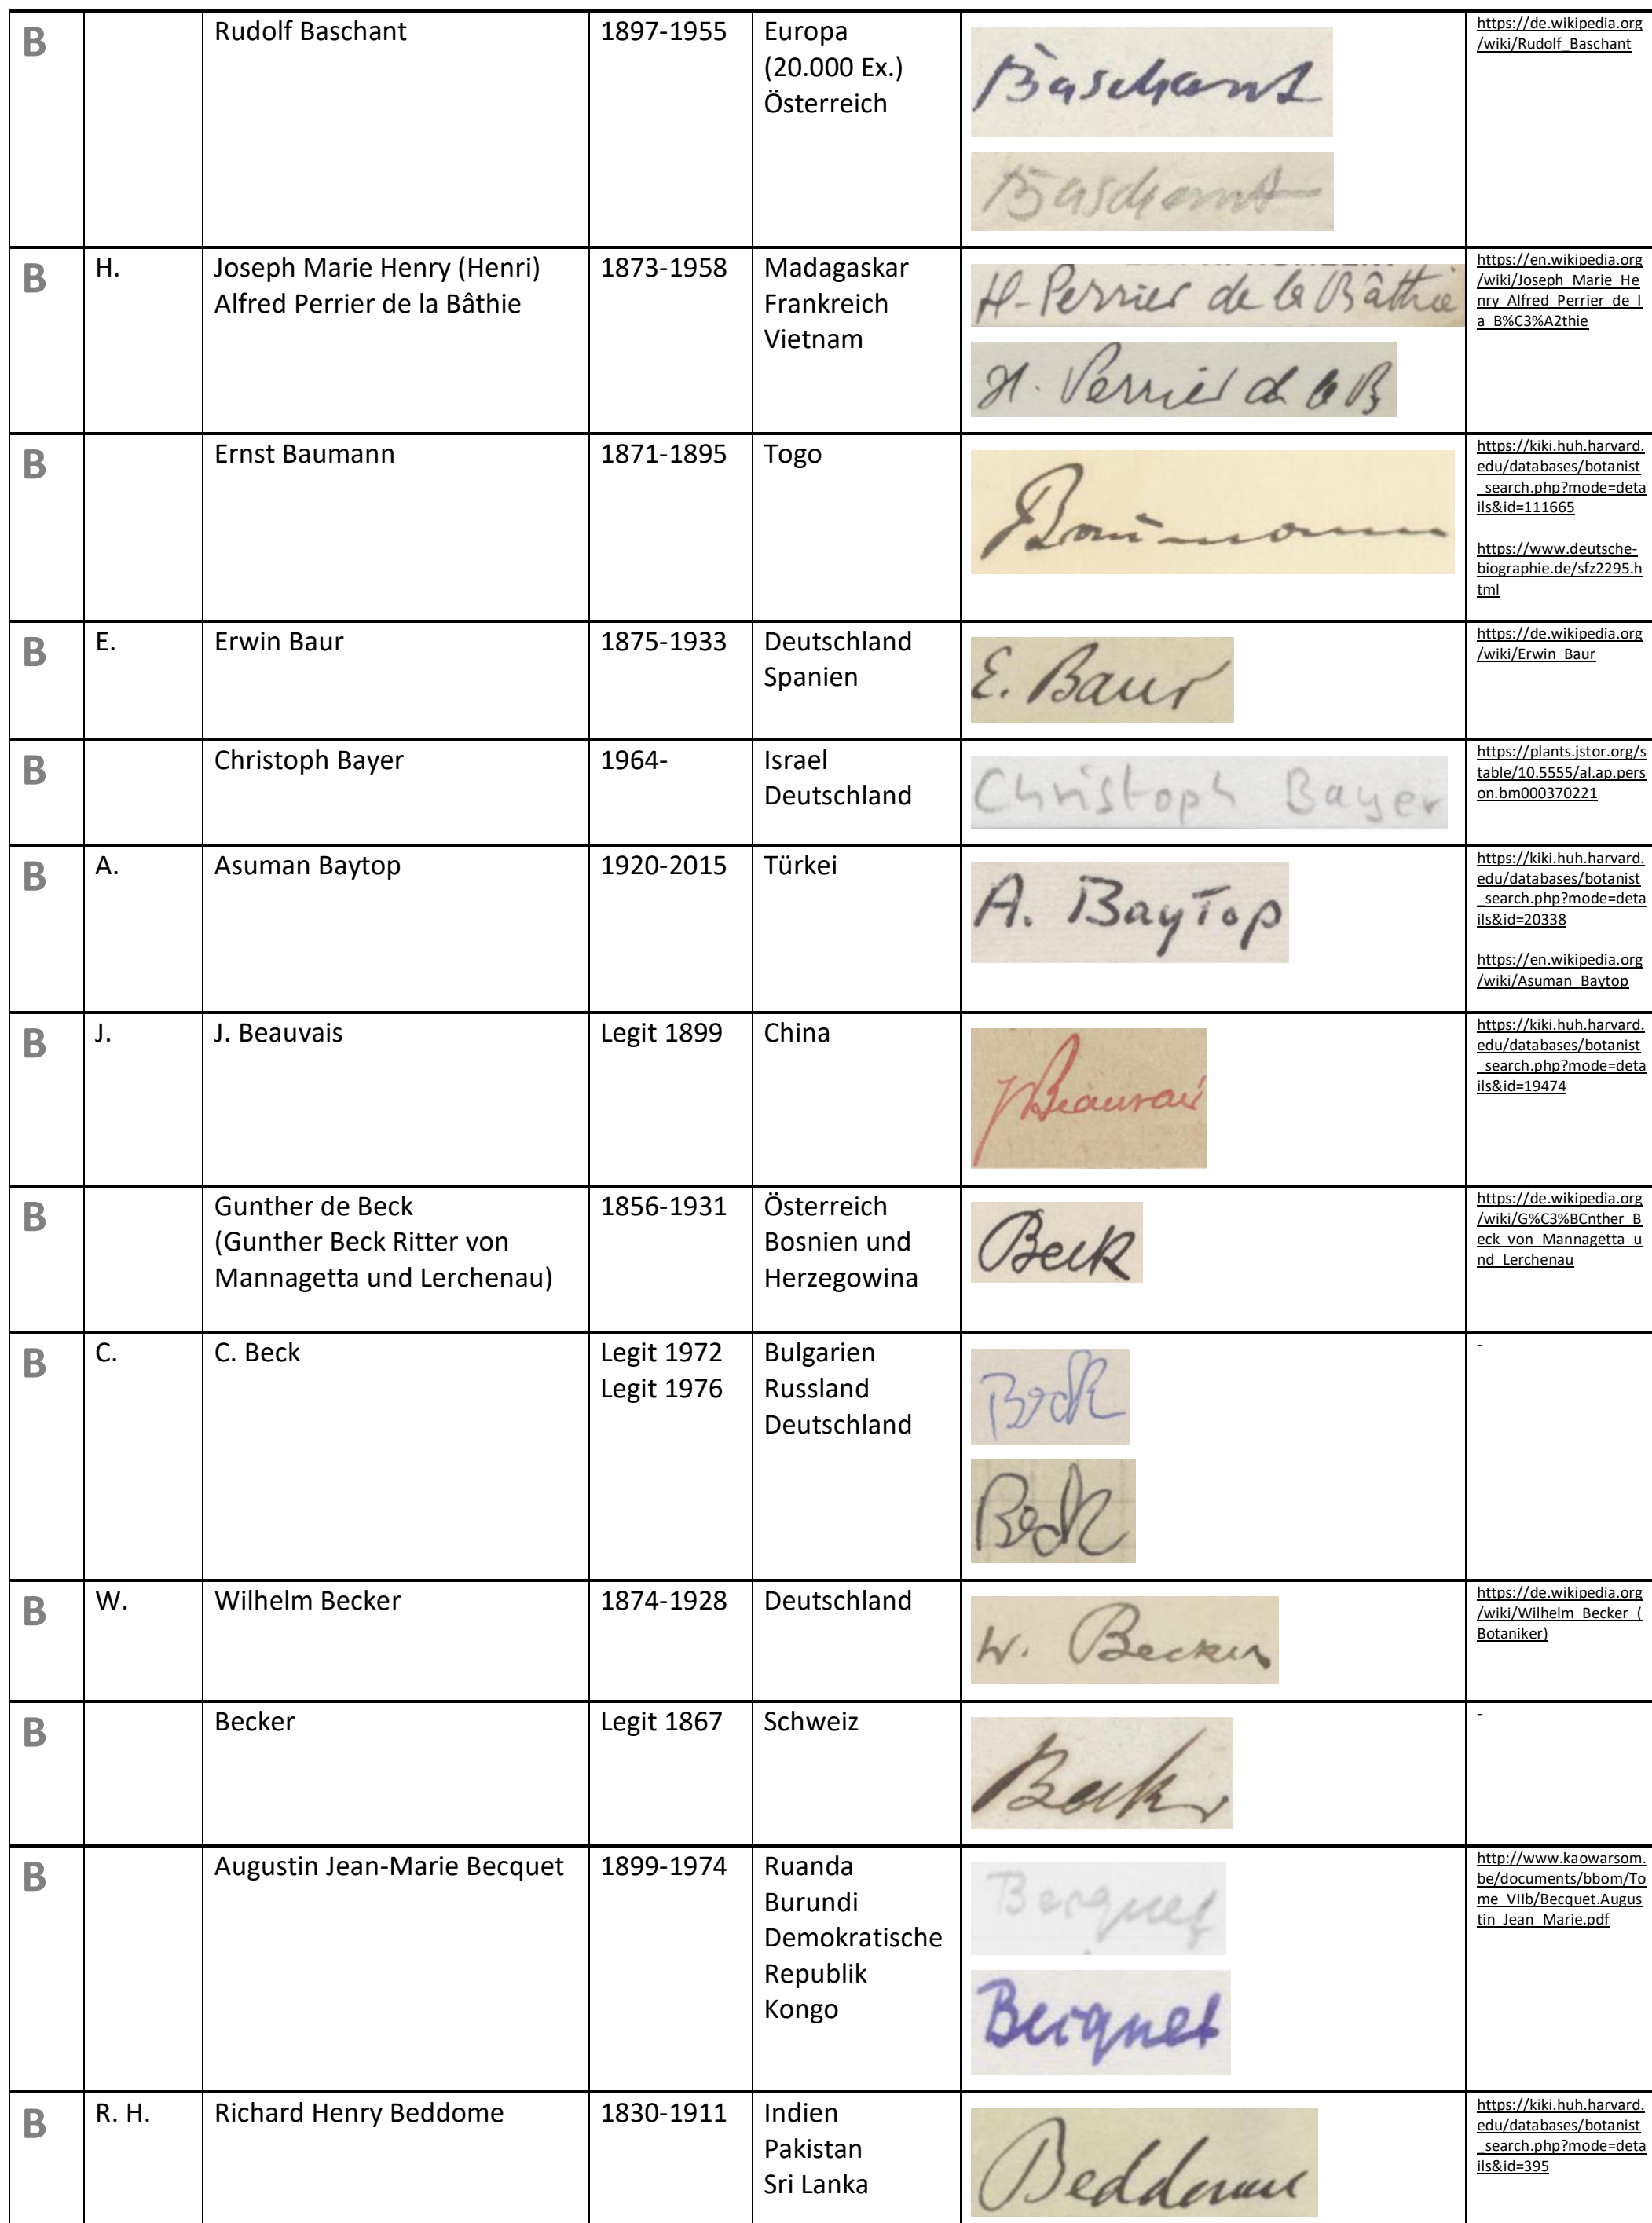 B
Rudolf Baschant
1897-1955
Europa
(20.000 Ex.)
Österreich
Baschant
Baschant
https://de.wikipedia.org
/wiki/Rudolf_Baschant
B
H.
Joseph Marie Henry (Henri)
Alfred Perrier de la Bâthie
1873-1958
Madagaskar
Frankreich
Vietnam
H-Perrier de la Bâthie
H. Perrier de la B
https://en.wikipedia.org
/wiki/Joseph_Marie_He
nry_Alfred_Perrier_de_l
a_B%C3%A2thie
B
Ernst Baumann
1871-1895
Togo
Baumann
https://kiki.huh.harvard.
edu/databases/botanist
_search.php?mode=deta
ils&id=111665
https://www.deutsche-
biographie.de/sfz2295.h
tml
B
E.
Erwin Baur
1875-1933
Deutschland
Spanien
E. Baur
https://de.wikipedia.org
/wiki/Erwin_Baur
B
Christoph Bayer
1964-
Israel
Deutschland
Christoph Bayer
https://plants.jstor.org/s
table/10.5555/al.ap.pers
on.bm000370221
B
A.
Asuman Baytop
1920-2015
Türkei
A. Baytop
https://kiki.huh.harvard.
edu/databases/botanist
_search.php?mode=deta
ils&id=20338
https://en.wikipedia.org
/wiki/Asuman_Baytop
B
J.
J. Beauvais
Legit 1899
China
J Beauvais
https://kiki.huh.harvard.
edu/databases/botanist
_search.php?mode=deta
ils&id=19474
B
Gunther de Beck
(Gunther Beck Ritter von
Mannagetta und Lerchenau)
1856-1931
Österreich
Bosnien und
Herzegowina
Beck
https://de.wikipedia.org
/wiki/G%C3%BCnther_B
eck_von_Mannagetta_u
nd_Lerchenau
B
C.
C. Beck
Legit 1972
Legit 1976
Bulgarien
Russland
Deutschland
Beck
Beck
-
B
W.
Wilhelm Becker
1874-1928
Deutschland
W. Becker
https://de.wikipedia.org
/wiki/Wilhelm_Becker_(
Botaniker)
B
Becker
Legit 1867
Schweiz
Becker
-
B
Augustin Jean-Marie Becquet
1899-1974
Ruanda
Burundi
Demokratische
Republik
Kongo
Becquet
Becquet
http://www.kaowarsom.
be/documents/bbom/To
me_VIIb/Becquet.Augus
tin_Jean_Marie.pdf
B
R. H.
Richard Henry Beddome
1830-1911
Indien
Pakistan
Sri Lanka
Beddome
https://kiki.huh.harvard.
edu/databases/botanist
_search.php?mode=deta
ils&id=395